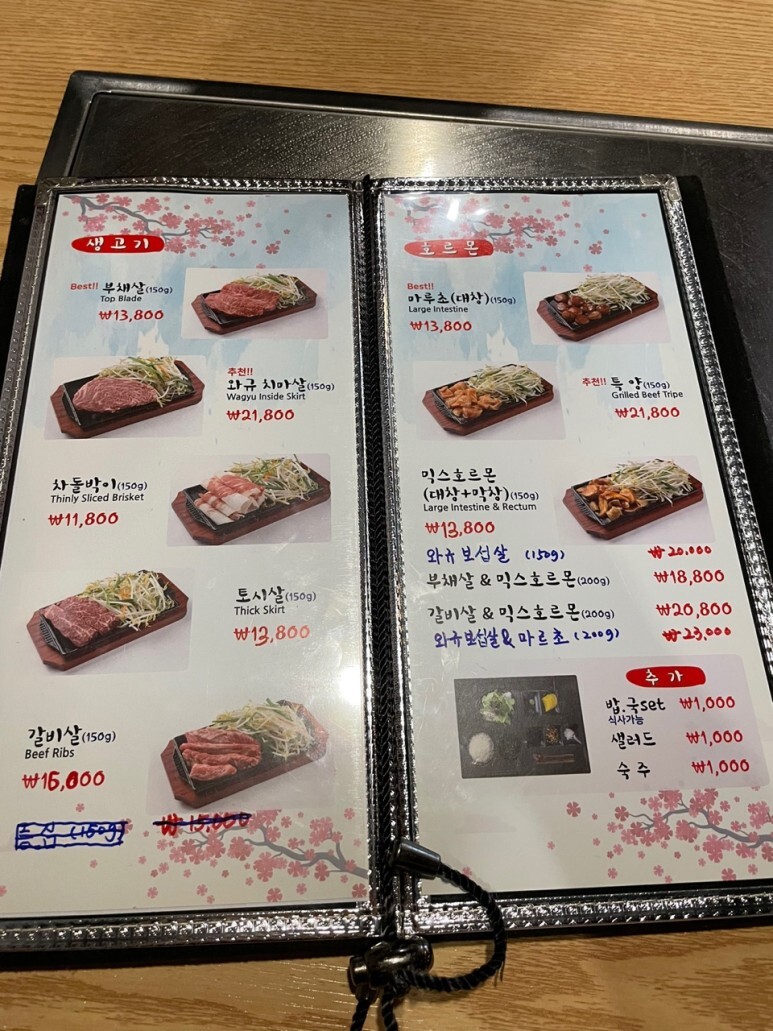 생고기
Best!! 부채살(150g)
Top Blade
₩13,800
추천!!
와규 치마살(150g)
Wagyu Inside Skirt
₩21,800
차돌박이(150g)
Thinly Sliced Brisket
₩11,800
토시살(150g)
Thick Skirt
₩13,800
갈비살(150g)
Beef Ribs
₩16,000
등심 (150g) ₩ 15,000
호르몬
Best!!
마루쵸(대창)(150g)
Large Intestine
₩13,800
추천!! 특 양(150g)
Grilled Beef Tripe
₩21,800
믹스호르몬
(대창+막창)(150g)
Large Intestine & Rectum
₩13,800
와규 보섭살 (150g) ₩20,000
부채살 & 믹스호르몬(200g) ₩18,800
갈비살 & 믹스호르몬(200g) ₩20,800
와규보섭살 & 마르쵸 (200g) ₩23,000
추가
밥.국set ₩1,000
식사가능
샐러드 ₩1,000
숙주 ₩1,000